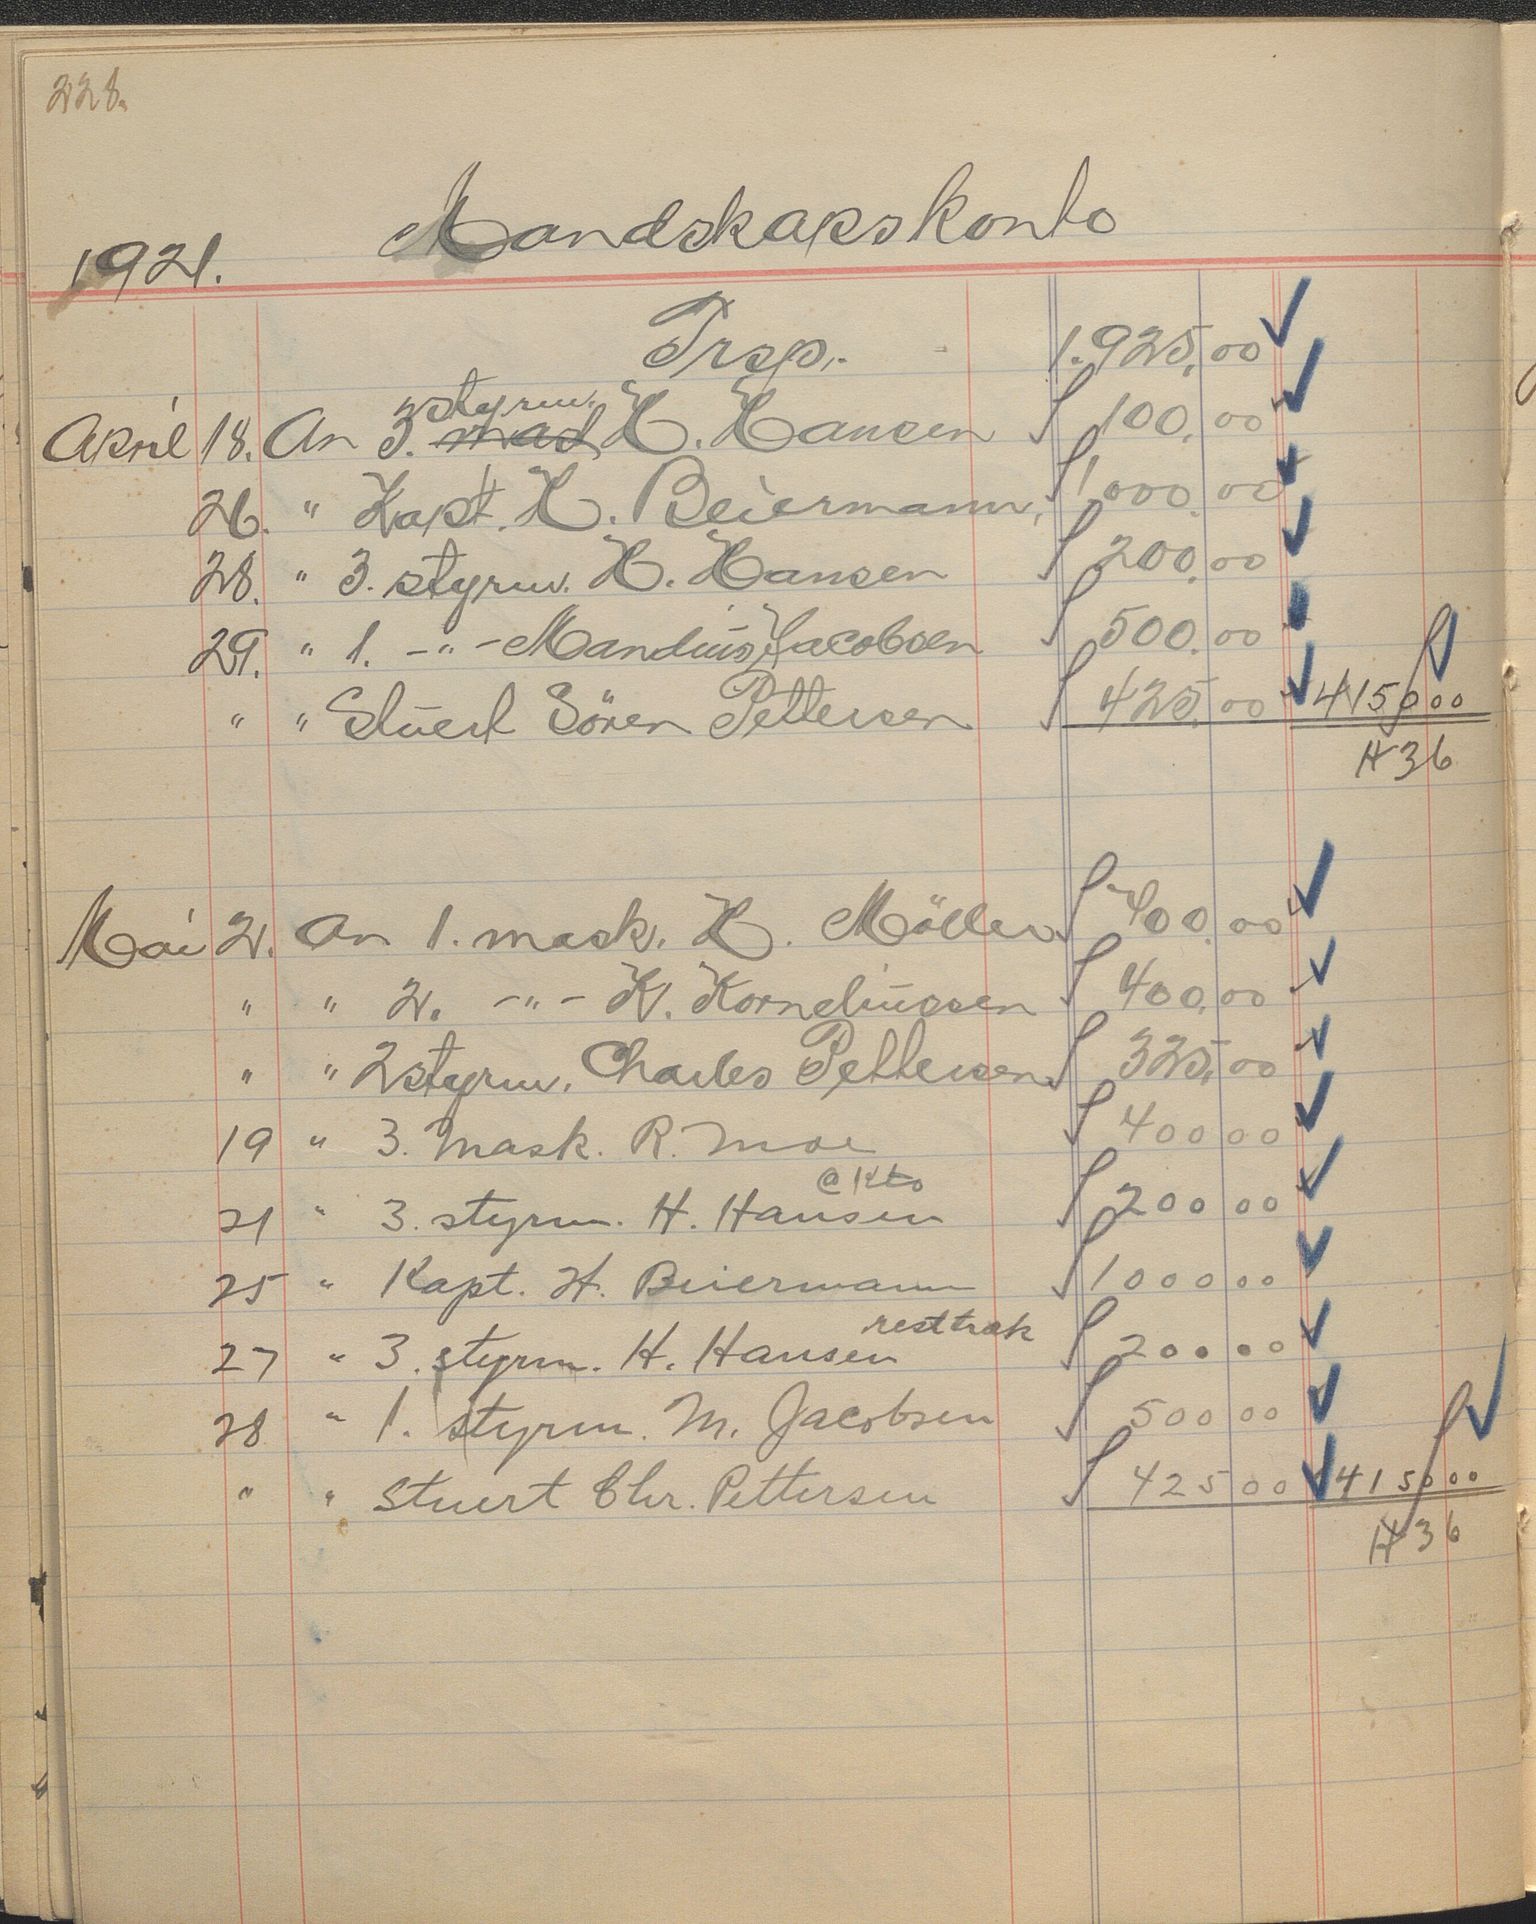 228.
Mandskapskonto
1921.
Trsp. 1.925,00
styrm.
April 18. An 3. mask H. Hansen 100,00
26. " Kapt. H. Beiermann, 1000,00
28. " 3. styrm. H. Hansen 200,00
29. " 1. -"- Mandius Jacobsen 500,00
" " Stuert Sören Pettersen 425,00 4150 00
H 36
Mai 2. An 1. mask. H. Möller 400,00
" " 2. -"- K. Korneliussen 400,00
" " 2 styrm. Charles Pettersen 325,00
19 " 3. Mask. R. Moe 400 00
a Kto
21 " 3. styrm. H. Hansen 200 00
25 " Kapt. H. Beiermann 1000 00
resttræk
27 " 3. styrm. H. Hansen 200 00
28 " 1. styrm. M. Jacobsen 500 00
" " Stuert Chr. Pettersen 425 00 4150 00
H 36